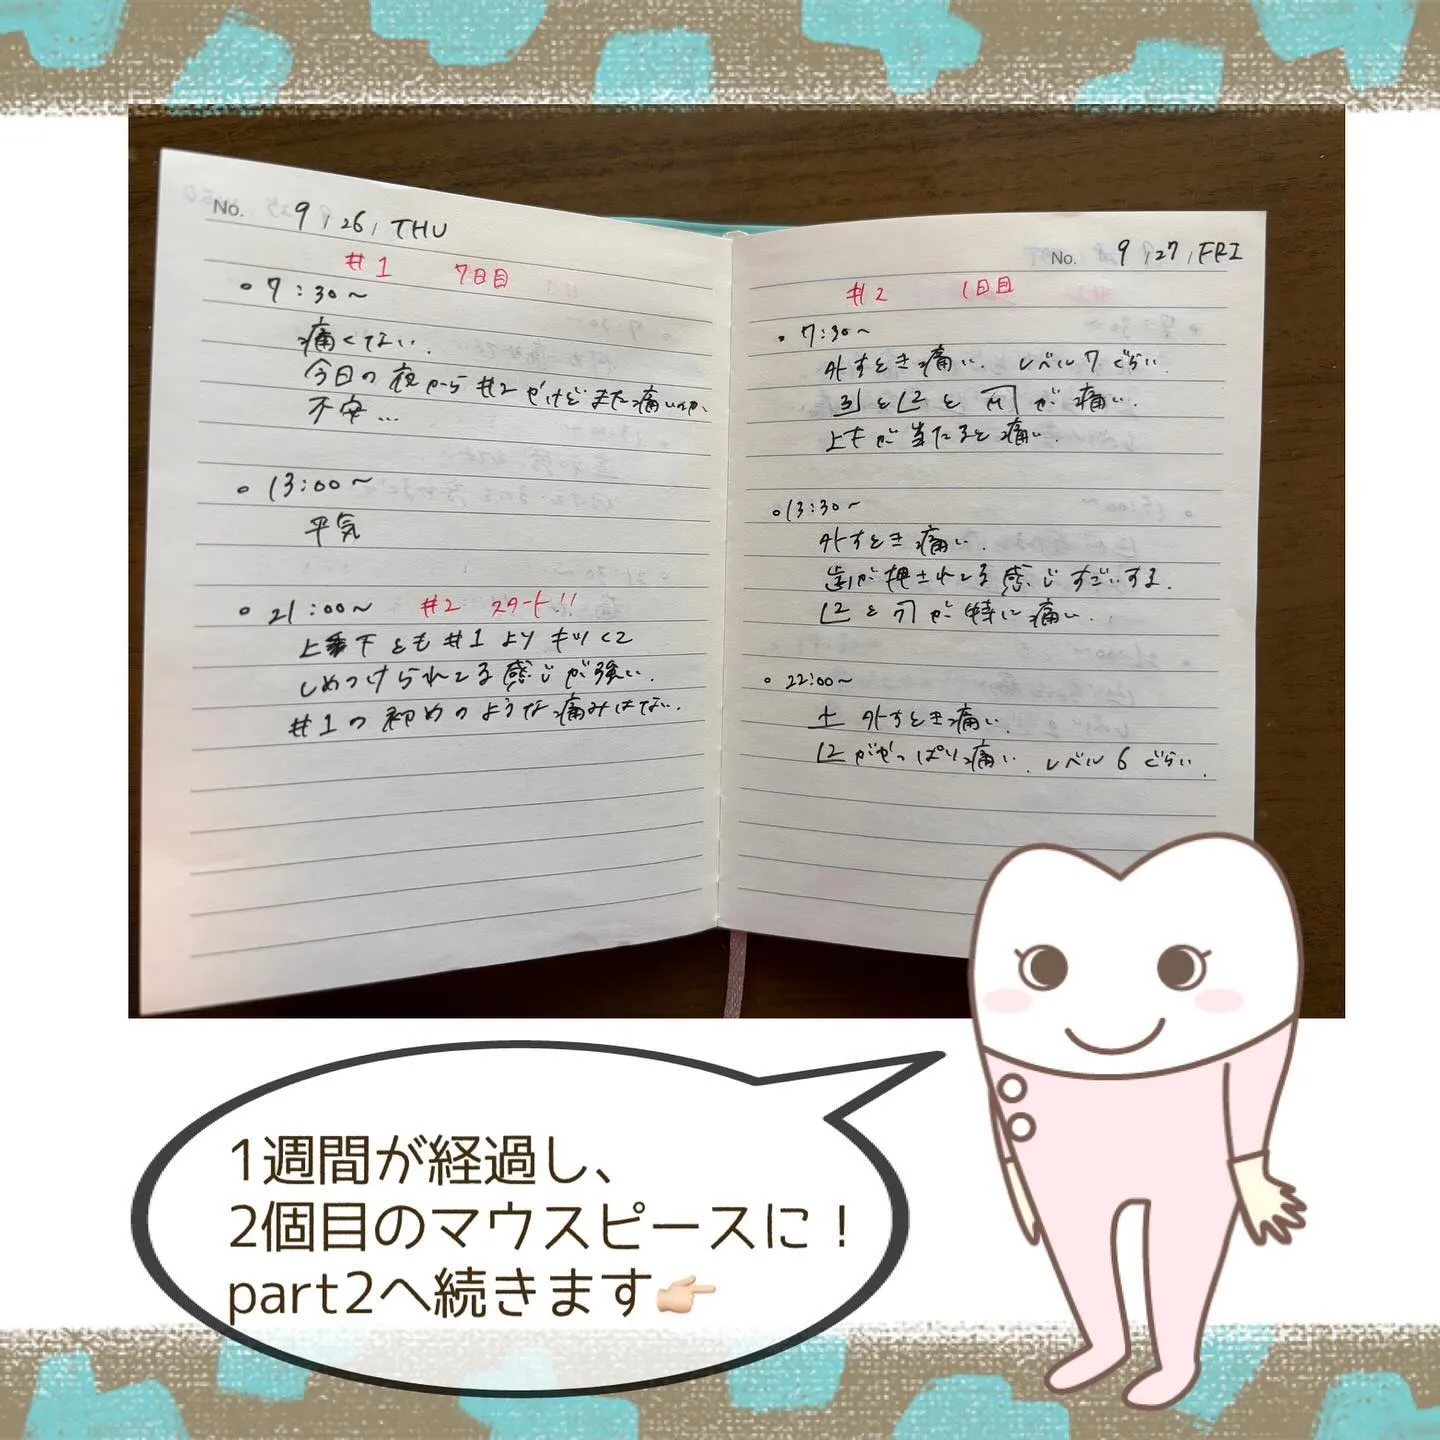 No. 9, 26, THU
#1 7日目
7:30〜
痛くない.
今日の夜から#2だけどまた痛いのか、
不安...
13:00〜
平気
21:00〜 #2 スタート!!
上下とも#1よりキツくて
しめつけられてる感じが強い.
#1の初めのような痛みはない.
No. 9, 27, FRI
#2 1日目
7:30〜
外すとき痛い. レベル7ぐらい.
3」と⌊2と が痛い.
上下が当たると痛い.
13:30〜
外すとき痛い.
歯が押されてる感じすごいする.
⌊2と が特に痛い.
22:00〜
上 外すとき痛い.
⌊2がやっぱり痛い. レベル6ぐらい.
1週間が経過し、
2個目のマウスピースに！
part2へ続きます👉🏻